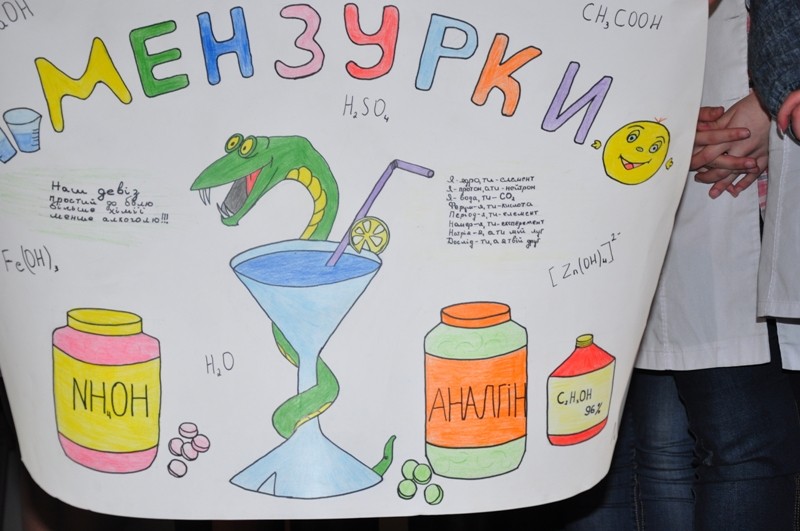 OH
CH₃COOH
МЕНЗУРКИ
H₂SO₄
Наш девіз
простий до болю
більше хімії
менше алкоголю!!!
Я-ядро, ти-елемент
Я-протон, а ти-нейтрон
Я-вода, ти-CO₂
Форм-я, ти-кислота
Період-я, ти-елемент
Я, ти-експеремент
а ти мій луг
Дослід-ти, а я твій друг
Fe(OH)₃
[Zn(OH)₄]²⁻
H₂O
NH₄OH
АНАЛГІН
C₂H₅OH
96%